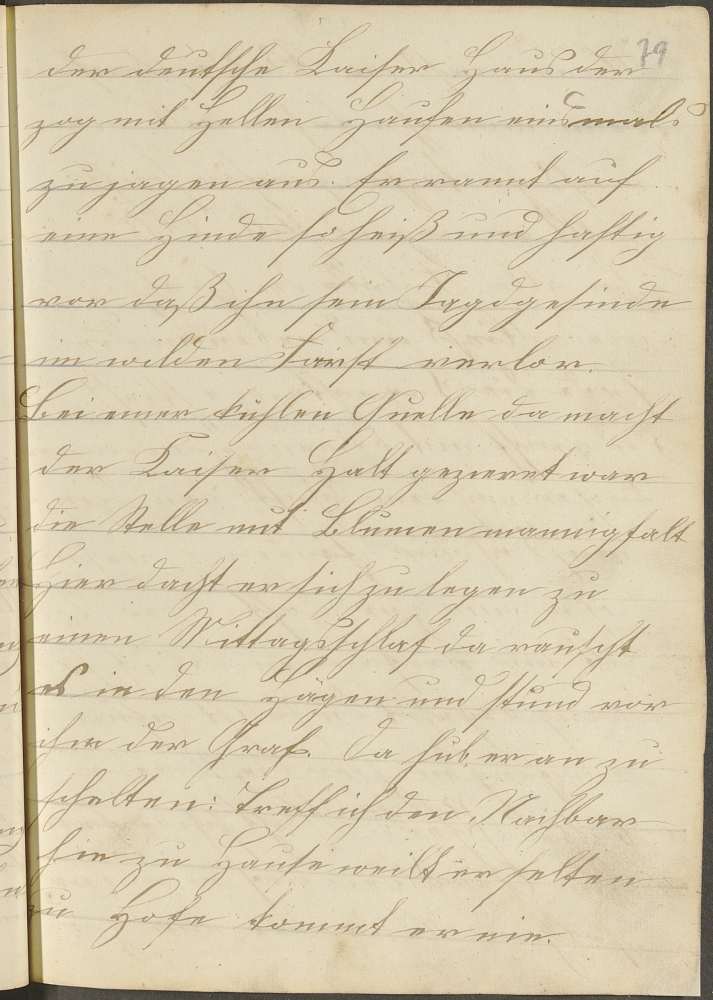 79
der deutsche Kaiser Haus der
zog mit Hellen Haufen einsmals
zu jagen aus. Er rannt auf
eine Hinde so heiß und hastig
vor daß ihn sein Jagdgesinde
im wilden Farst verlor.
Bei einer kühlen Quelle da macht
der Kaiser Halt gezieret war
die Stelle mit Blumen mannigfalt
Hier dacht er sich zu legen zu
einen Mittagsschlaf da rauscht
es in den Hägen und stund vor
ihm der Graf. Da hub er an zu
schelten: Treff ich den Nachbar
hie zu Hause weilt er selten
zu Hofe kommt er nie.